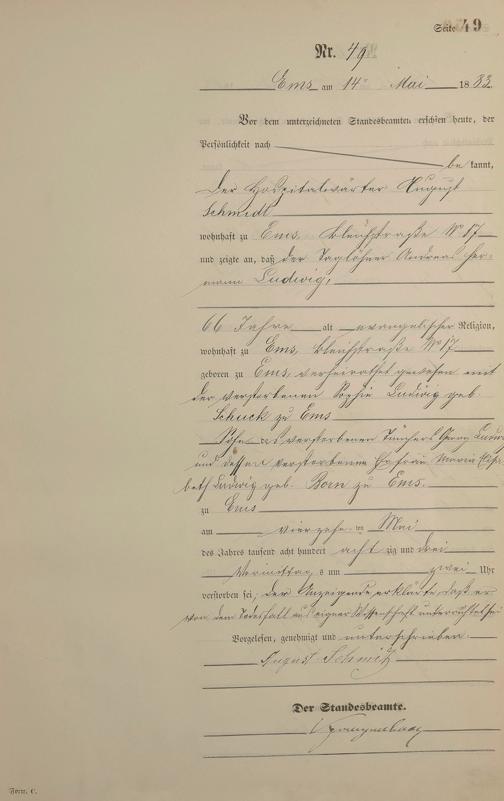 Seite 49
Nr. 49
Ems am 14ten Mai 1883.
Vor dem unterzeichneten Standesbeamten erschien heute, der
Persönlichkeit nach
be kannt,
der Hospitalwärter August
Schmidt
wohnhaft zu Ems, Bleichstraße No 17
und zeigte an, daß der Taglöhner Andreas Her-
mann Ludwig,
66 Jahre alt evangelischer Religion,
wohnhaft zu Ems, Bleichstraße No 17
geboren zu Ems, verheirathet gewesen mit
der verstorbenen Sophie Ludwig geb.
Schuck zu Ems
Sohn des verstorbenen Tünchers Georg Ludwig
und dessen verstorbene Ehefrau Maria Elisa
beth Ludwig geb. Born zu Ems.
zu Ems
am vierzehnten Mai
des Jahres tausend acht hundert acht zig und drei
Vormittags um zwei Uhr
verstorben sei, der Anzeigende erklärte, daß er
von dem Todesfall aus eigner Wissenschaft unterrichtet sei
Vorgelesen, genehmigt und unterschrieben
August Schmitz
Der Standesbeamte.
Form. C.